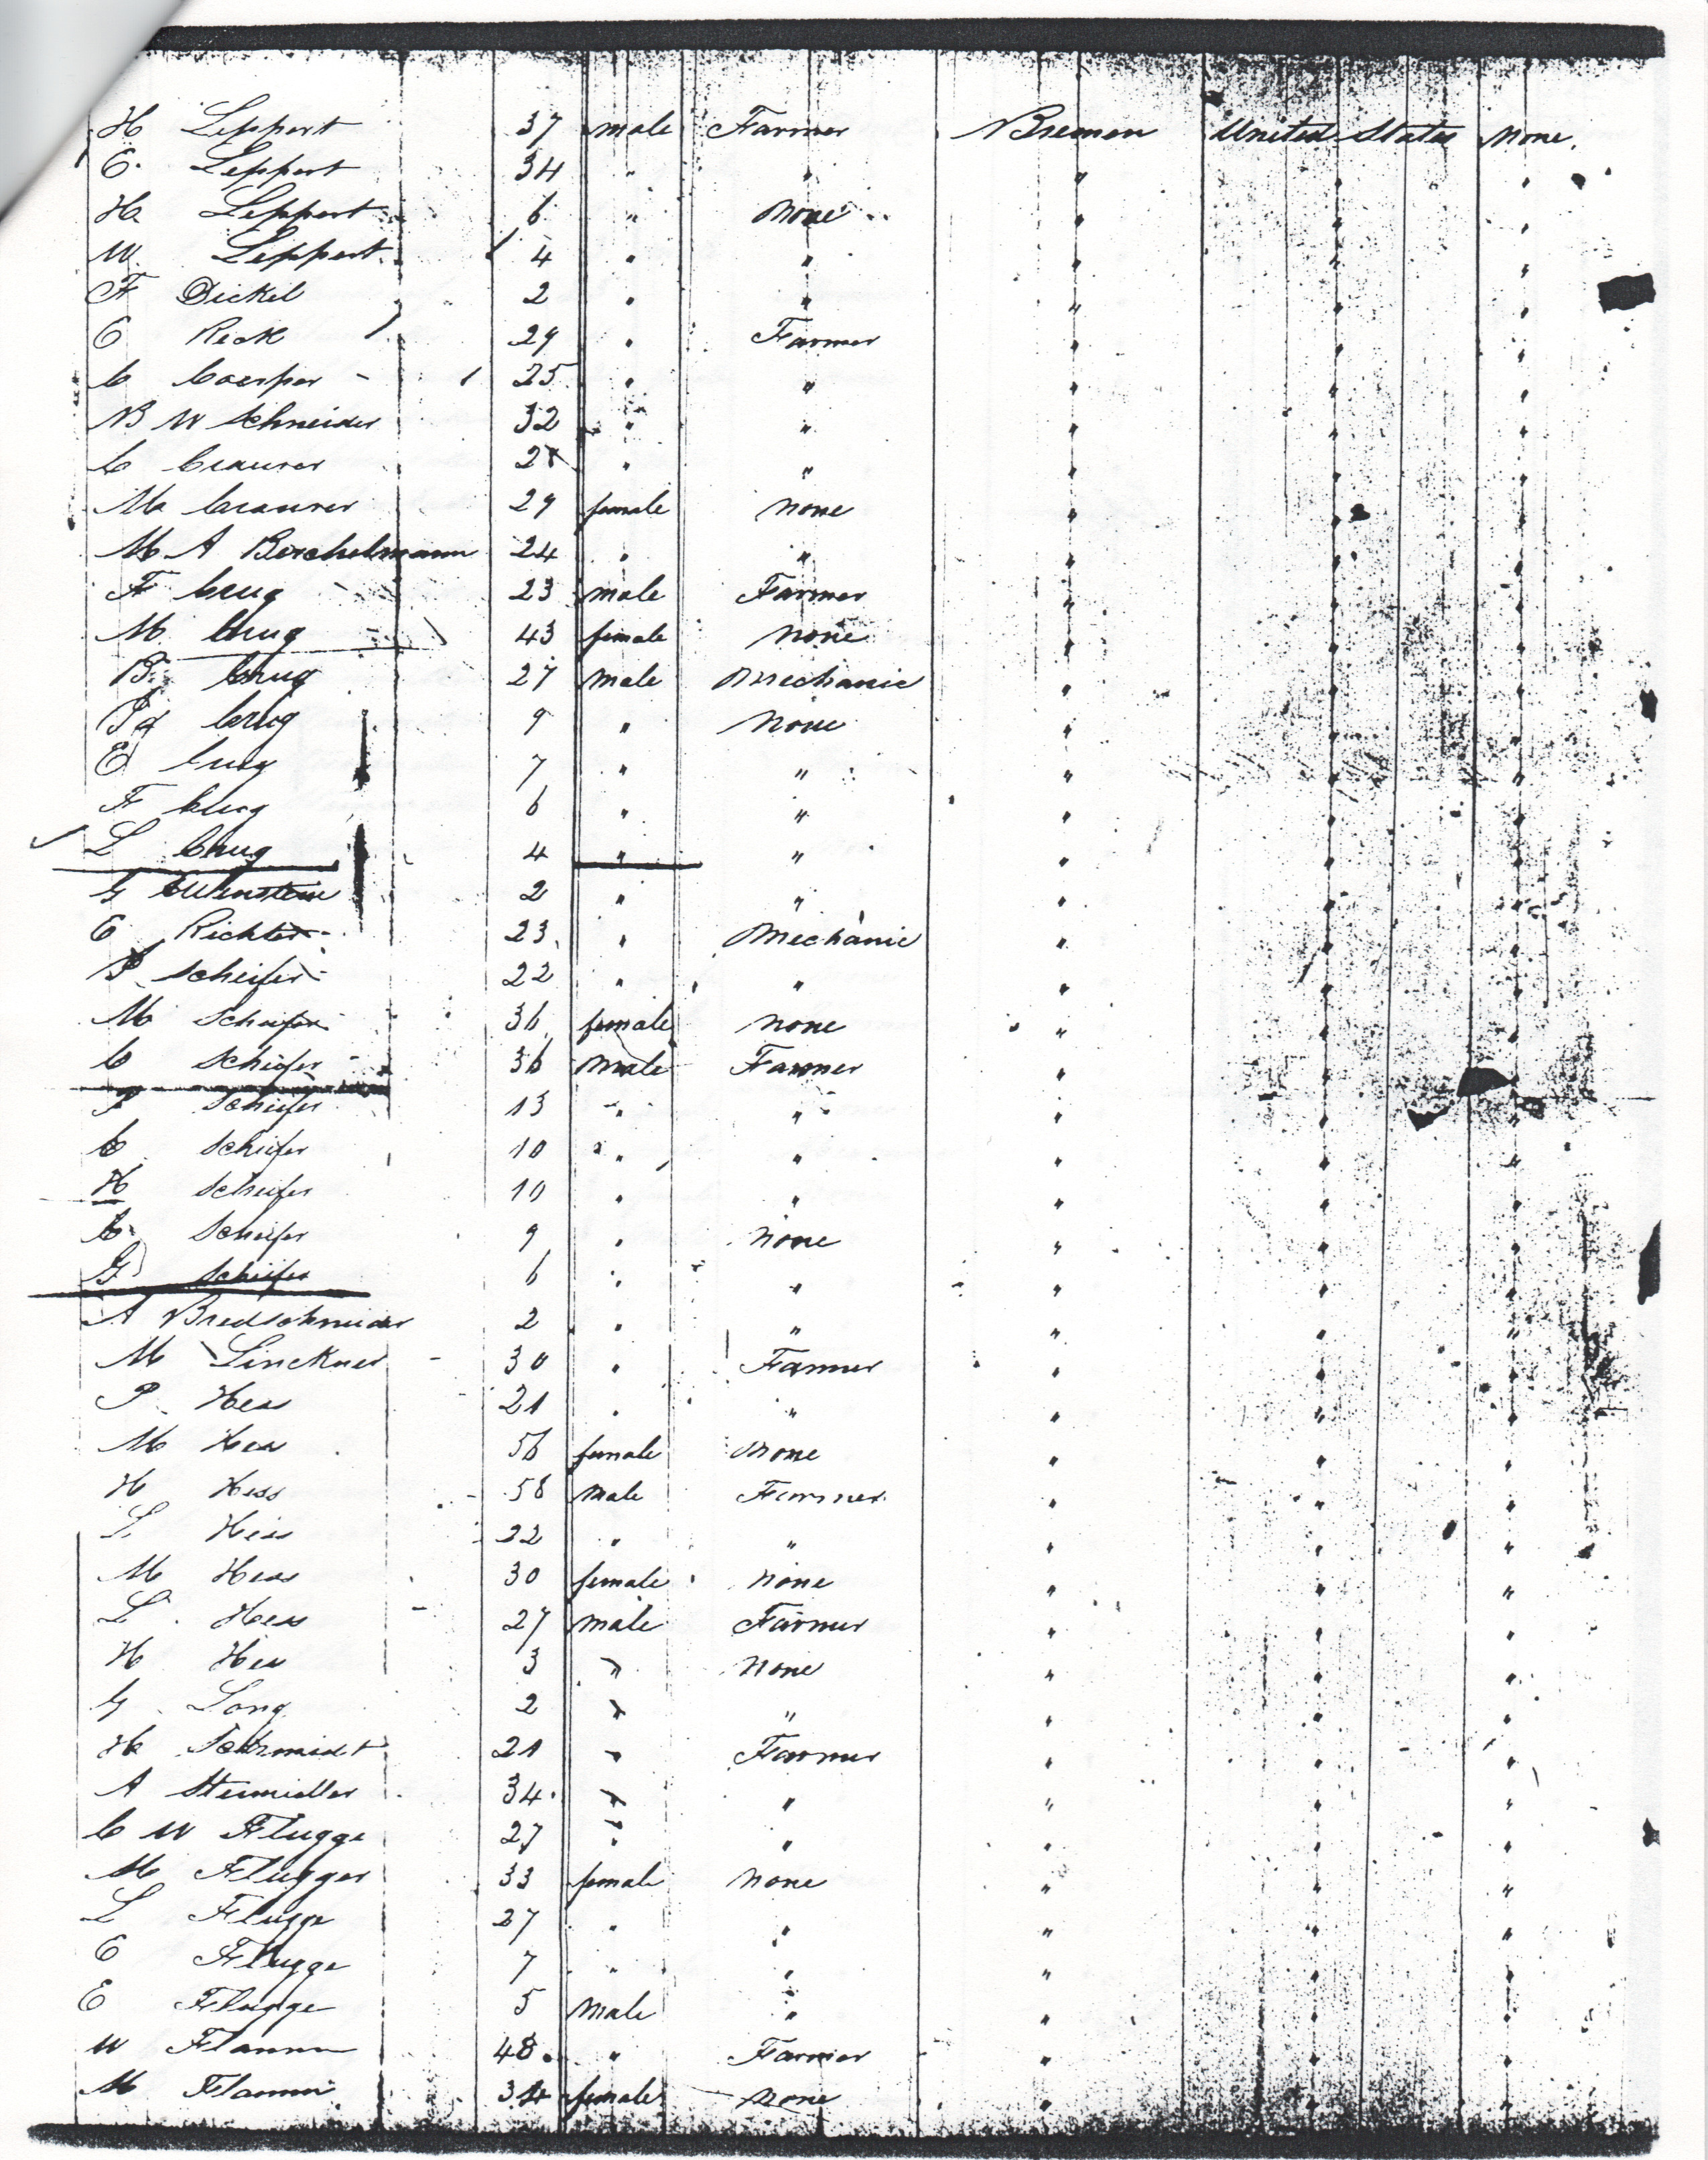 H Leppert 37 male Farmer Bremen United States None.
E. Leppert 34 " " " " "
H Leppert 6 " None " " "
W Leppert 4 " " " " "
F Dickel 2 " " " " "
C Reck 29 " Farmer " " "
C Caesper 25 " " " " "
B W Schneider 32 " " " " "
C Craurer " " " " "
M Craurer 29 female none " " "
M A Borchelmann 24 " " " " "
F Crug 23 male Farmer " " "
M Crug 43 female none " " "
B Crug 27 male Mechanic " " "
Crug 9 " None " " "
E Crug 7 " " " " "
F Crug 6 " " " " "
L Crug 4 " " " " "
G 2 " " " " "
C Richter 23 " Mechanic " " "
P Scheifer 22 " " " " "
M Scheifer 36 female none " " "
C Scheifer 36 male Farmer " " "
P Scheifer 13 " " " " "
C Scheifer 10 " " " " "
H Scheifer 10 " " " " "
C Scheifer 9 " none " " "
G Scheifer 6 " " " " "
A Bredschneider 2 " " " " "
M Linckner 30 " Farmer " " "
P Hess 21 " " " " "
M Hess 56 female None " " "
H Hess 58 male Farmer " " "
L Hess 22 " " " " "
M Hess 30 female none " " "
L Hess 27 male Farmer " " "
H Hess 3 " none " " "
G Long 2 " " " " "
H Schmidt 21 " Farmer " " "
A Steimeller 34 " " " " "
C W Flugge 27 " " " " "
M Flugger 33 female none " " "
L Flugge 27 " " " " "
E Flugge 7 " " " " "
E Flugge 5 male " " " "
W Flamm 48 " Farmer " " "
M Flamm 34 female none " " "